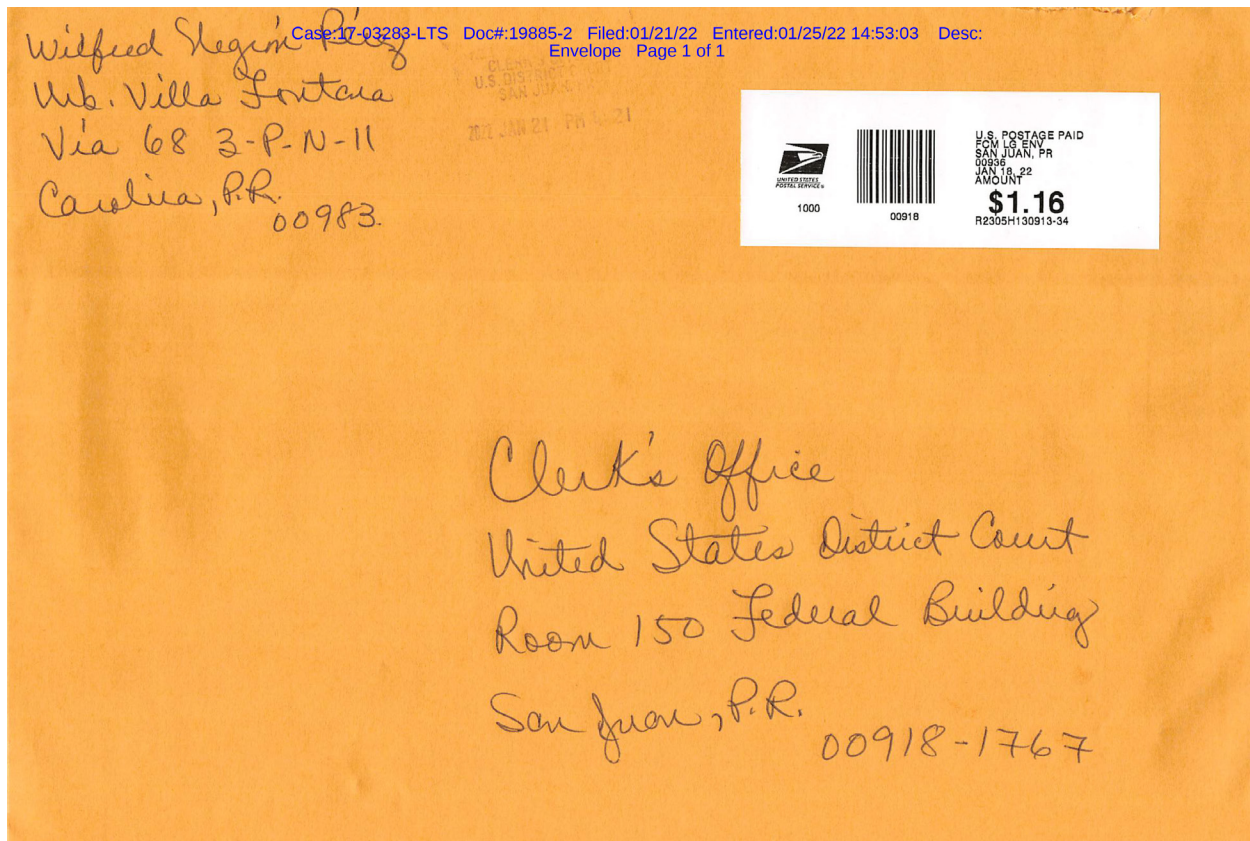 Case:17-03283-LTS Doc#:19885-2 Filed:01/21/22 Entered:01/25/22 14:53:03 Desc:
Envelope Page 1 of 1
Wilfred Negrón
Urb. Villa Fontana
Vía 68 3-P-N-11
Carolina, P.R.
00983.
CLERK'S
U.S. DISTRICT
SAN JUAN
2022 JAN 21 PM
UNITED STATES
POSTAL SERVICE
1000
00918
U.S. POSTAGE PAID
FCM LG ENV
SAN JUAN, PR
00936
JAN 18, 22
AMOUNT
$1.16
R2305H130913-34
Clerk's Office
United States District Court
Room 150 Federal Building
San Juan, P.R.
00918-1767